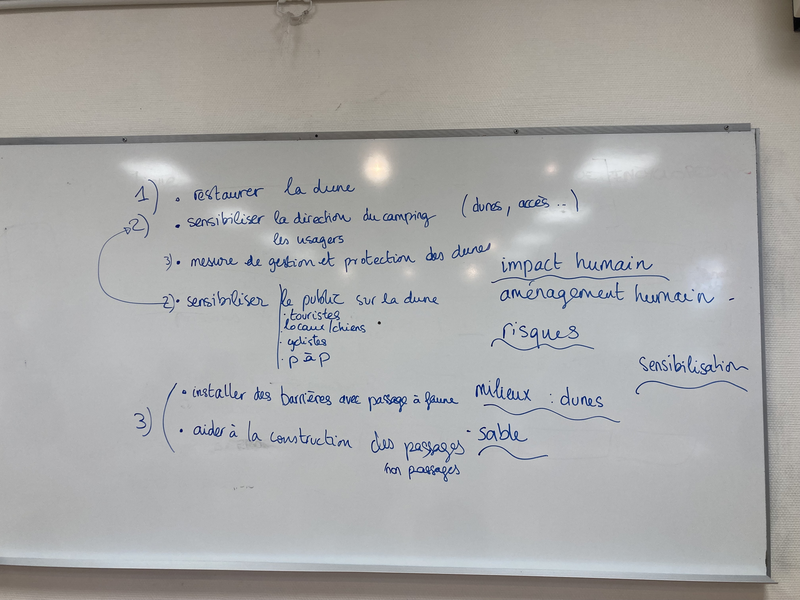 1) • restaurer la dune
2) • sensibiliser la direction du camping (dunes, accès ..)
les usagers
3) • mesure de gestion et protection des dunes
2) • sensibiliser le public sur la dune
• touristes
locaux/chiens •
• cyclistes
• p à p
3) • installer des barrières avec passage à faune
• aider à la construction des passages
non passages
impact humain
aménagement humain -
risques
sensibilisation
milieux : dunes
- sable